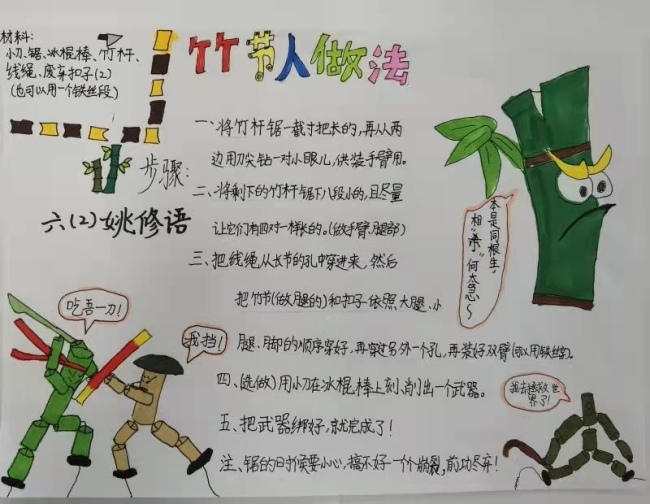 材料:
小刀、锯、冰棍棒、竹杆、
线绳、废弃扣子(2)
(也可以用一个铁丝段)
竹节人做法
步骤:
六(2)姚修语
一、将竹杆锯一截寸把长的,再从两
边用刀尖钻一对小眼儿,供装手臂用。
二、将剩下的竹杆锯下八段小的,且尽量
让它们有四对一样长的。(做手臂、腿部)
三、把线绳从长节的孔中穿进来,然后
把竹节(做腿的)和扣子依照大腿、小
腿、脚的顺序穿好,再穿过另外一个孔,再装好双臂(可以用铁丝穿)。
四、(选做)用小刀在冰棍棒上刻、削出一个武器。
五、把武器绑好,就完成了!
注、锯的时候要小心,搞不好一个崩裂,前功尽弃!
本是同根生,
相“杀”何太急~
吃吾一刀!
我挡!
我去拯救世
界了!